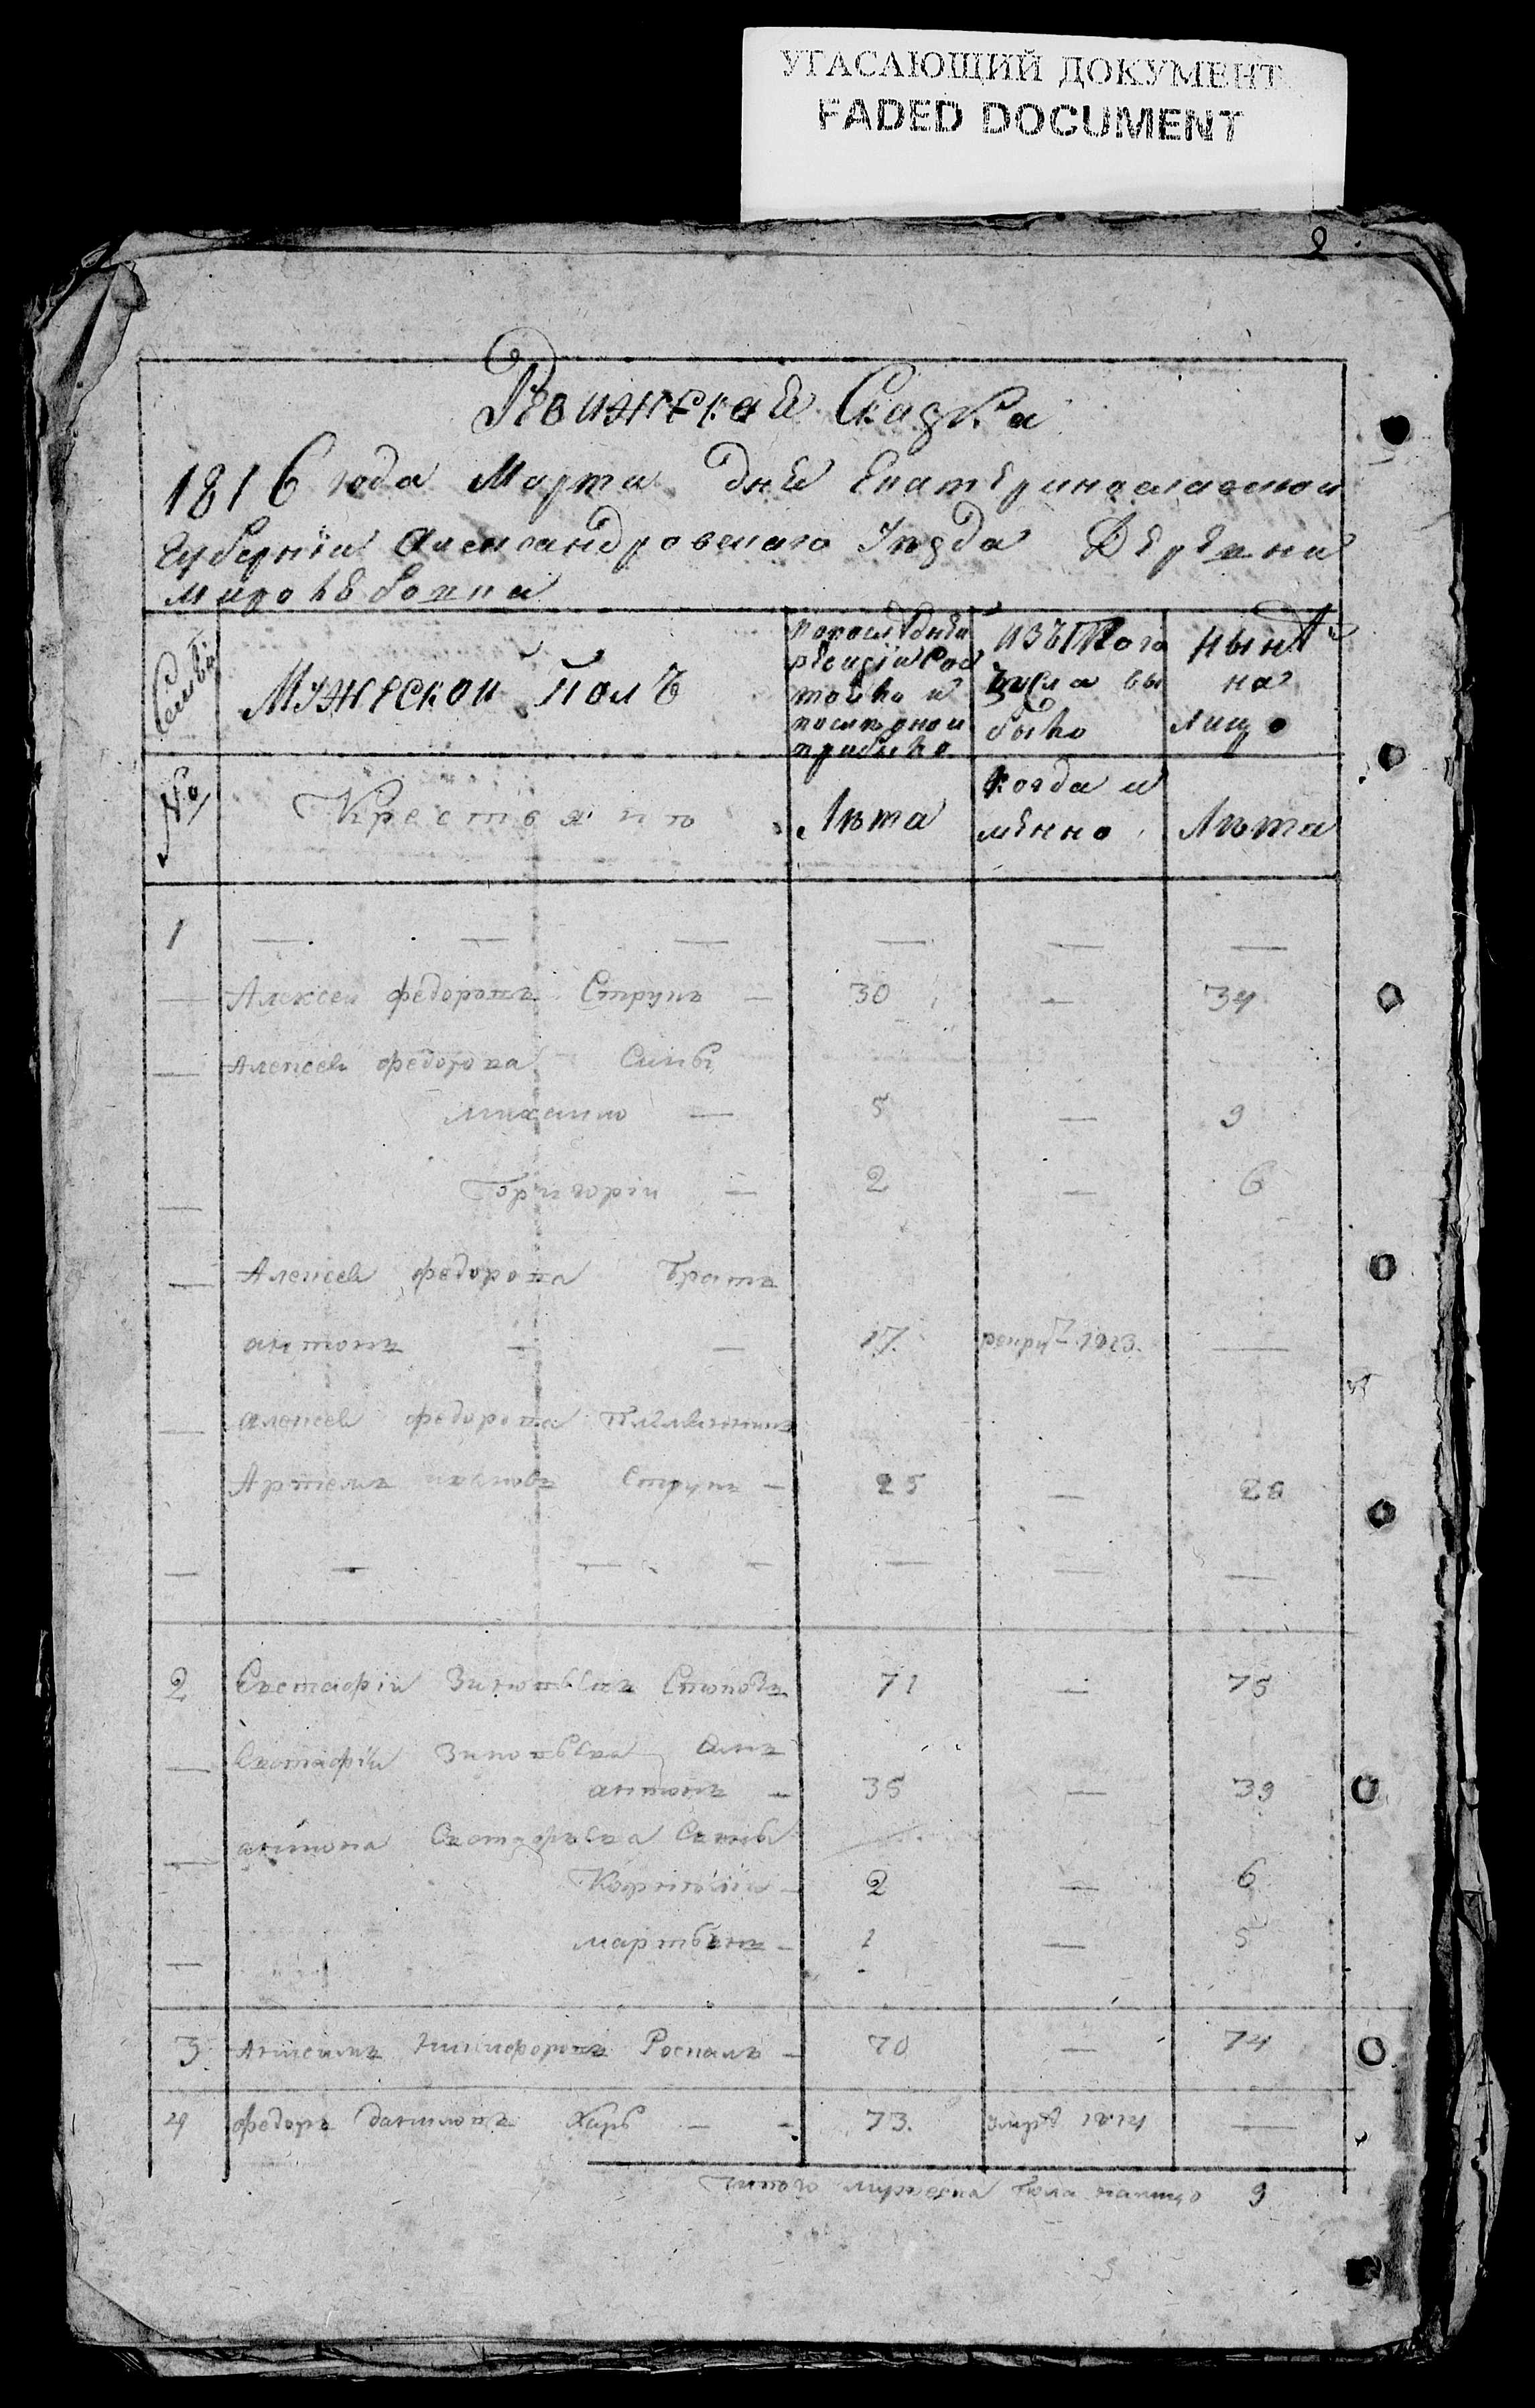 УГАСАЮЩИЙ ДОКУМЕНТ
FADED DOCUMENT
2
Ревижская Сказка
1816 года Марта дня Екатеринославской
Губернiи Александровскаго Уѣзда Деревни
Семьи
Мужеской полъ
по последней ревизiи состояло и после оной прибыло
изъ того числа выбыло
нынѣ на лицо
№
Крестьянъ
Лѣта
когда именно
Лѣта
1 — — — — — —
— Алексей федоровъ Струкъ — 30 — 34
— Алексея федорова Сыны
михаило — 5 — 9
— Григорiи — 2 — 6
— Алексея федорова братъ
антонъ — — 17. рекрут 1813. —
— алексея федорова племянникъ
Артемъ Струкъ — 25 — 28
— — — — — — —
2 Евстафiй Зиновьевъ 71 — 75
— Евстафiя Зиновьева сынъ
антонъ — 35 — 39
— антона Евстафьева Сыны
2 — 6
— мартынъ — 1 — 5
3 Анисимъ никифоровъ 70 — 74
4 федоръ даниловъ — — 73. умре 1814 —
Итого мужеска пола налицо 9